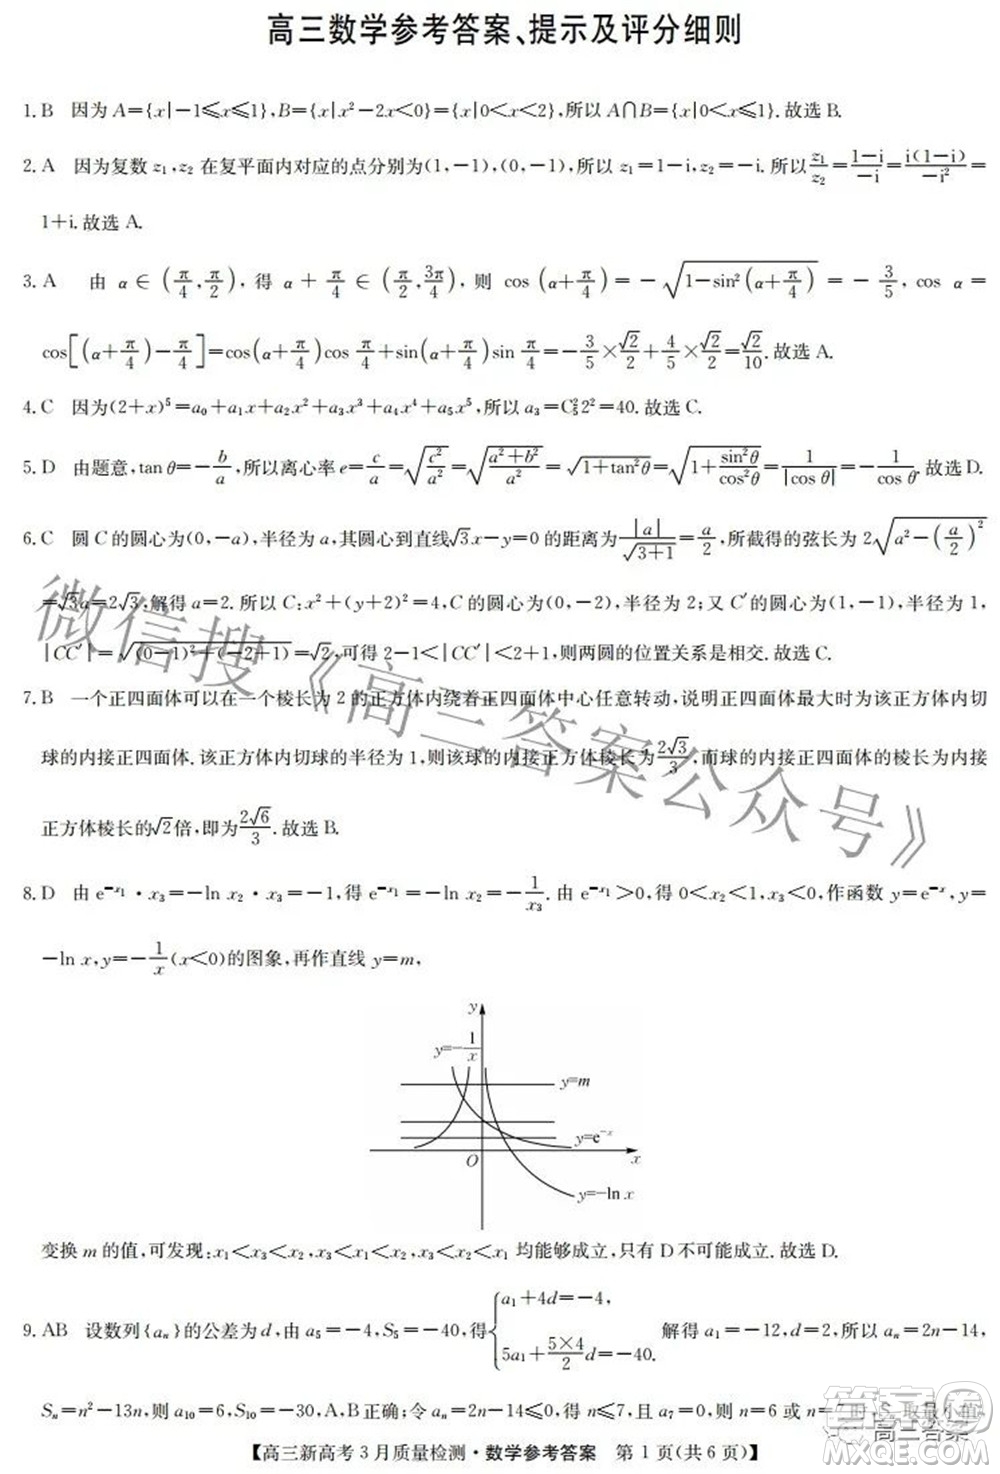 高三数学参考答案、提示及评分细则
1. B　因为 A={x|−1⩽x⩽1}, B={x|x²−2x<0}={x|0<x<2}, 所以 A∩B={x|0<x⩽1}. 故选 B.
2. A　因为复数 z₁, z₂ 在复平面内对应的点分别为(1,−1),(0,−1), 所以 z₁=1−i, z₂=−i. 所以 z₁/z₂=(1−i)/(−i)=i(1−i)/(−i²)=
1+i. 故选 A.
3. A　由 α∈(π/4, π/2), 得 α+π/4∈(π/2, 3π/4), 则 cos(α+π/4)=−√(1−sin²(α+π/4))=−3/5, cos α=
cos[(α+π/4)−π/4]=cos(α+π/4)cos π/4+sin(α+π/4)sin π/4=−3/5×√2/2+4/5×√2/2=√2/10. 故选 A.
4. C　因为(2+x)⁵=a₀+a₁x+a₂x²+a₃x³+a₄x⁴+a₅x⁵, 所以 a₃=C₅²2²=40. 故选 C.
5. D　由题意, tan θ=−b/a, 所以离心率 e=c/a=√(c²/a²)=√((a²+b²)/a²)=√(1+tan²θ)=√(1+sin²θ/cos²θ)=1/|cos θ|=−1/cos θ. 故选 D.
6. C　圆 C 的圆心为(0,−a), 半径为 a, 其圆心到直线√3x−y=0 的距离为|a|/√(3+1)=a/2, 所截得的弦长为 2√(a²−(a/2)²)
=√3a=2√3, 解得 a=2. 所以 C: x²+(y+2)²=4, C 的圆心为(0,−2), 半径为 2; 又 C′的圆心为(1,−1), 半径为 1,
|CC′|=√((0−1)²+(−2+1)²)=√2, 可得 2−1<|CC′|<2+1, 所以两圆的位置关系是相交. 故选 C.
7. B　一个正四面体可以在一个棱长为 2 的正方体内绕着正四面体中心任意转动, 说明正四面体最大时为该正方体内切
球的内接正四面体. 该正方体内切球的半径为 1, 则该球的内接正方体棱长为2√3/3, 而球的内接正四面体的棱长为内接
正方体棱长的√2倍, 即为2√6/3. 故选 B.
8. D　由 e^(−x₁)·x₃=−ln x₂·x₃=−1, 得 e^(−x₁)=−ln x₂=−1/x₃. 由 e^(−x₁)>0, 得 0<x₂<1, x₃<0, 作函数 y=e^(−x), y=
−ln x, y=−1/x(x<0)的图象, 再作直线 y=m,
y
y=−1/x
y=m
y=e^(−x)
O
x
y=−ln x
变换 m 的值, 可发现: x₁<x₃<x₂, x₃<x₁<x₂, x₃<x₂<x₁ 均能够成立, 只有 D 不可能成立. 故选 D.
9. AB　设数列{aₙ}的公差为 d, 由 a₅=−4, S₅=−40, 得{a₁+4d=−4, 5a₁+(5×4/2)d=−40. 解得 a₁=−12, d=2, 所以 aₙ=2n−14,
Sₙ=n²−13n, 则 a₁₀=6, S₁₀=−30, A, B 正确; 令 aₙ=2n−14⩽0, 得 n⩽7, 且 a₇=0, 则 n=6 或 n=7 时, Sₙ 取最小值
【高三新高考 3 月质量检测·数学参考答案　第 1 页(共 6 页)】
微信搜《高三答案公众号》
高三答案